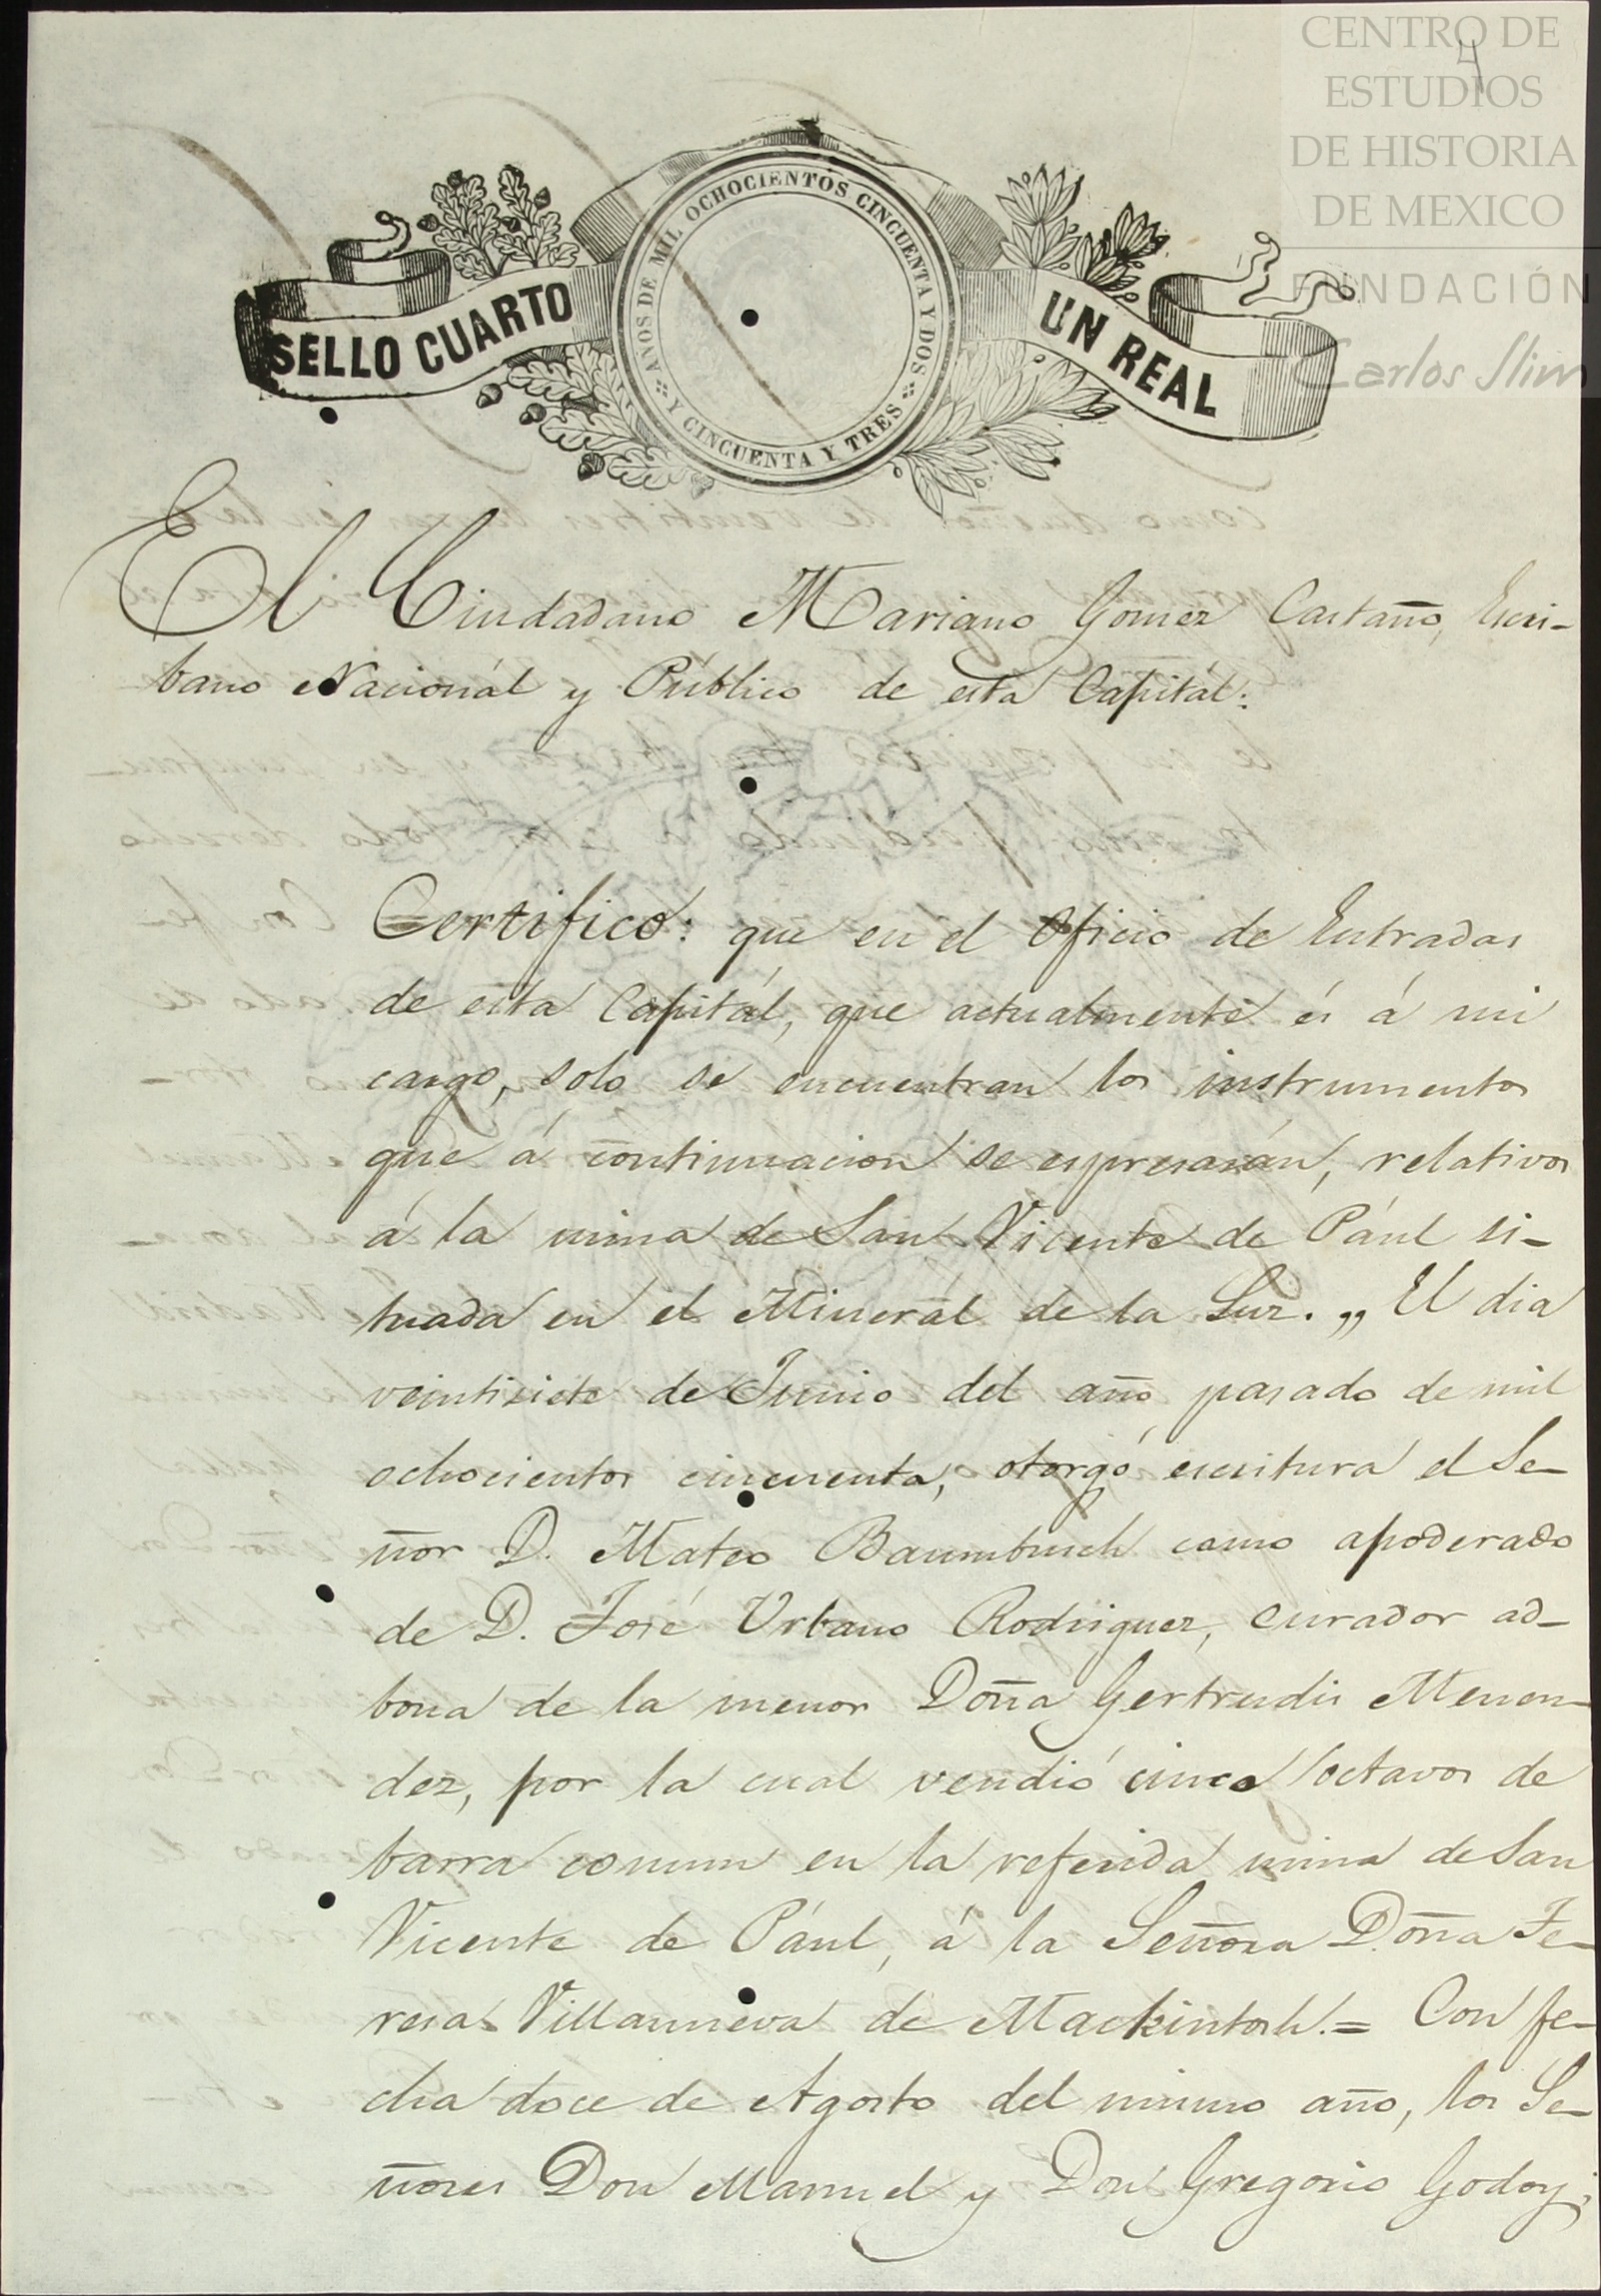 CENTRO DE
ESTUDIOS
DE HISTORIA
DE MEXICO
FUNDACIÓN
Carlos Slim
4
SELLO CUARTO
AÑOS DE MIL OCHOCIENTOS CINCUENTA Y DOS
Y CINCUENTA Y TRES
UN REAL
El Ciudadano Mariano Gomez Castaño, Escri-
bano Nacionál y Público de esta Capitál:
Certifico: que en el Oficio de Entradas
de esta Capitál, que actualmente és á mi
cargo, solo se encuentran los instrumentos
que á continuacion se espresarán, relativos
á la mina de San Vicente de Pául si-
tuada en el Minerál de la Luz. „ El dia
veintisiete de Junio del año pasado de mil
ochocientos cincuenta, otorgó escritura el Se-
ñor D. Mateo Baumbusch como apoderado
de D. José Urbano Rodriguez, curador ad-
bona de la menor Doña Gertrudis Menen-
dez, por la cual vendió cinco octavos de
barra comun en la referida mina de San
Vicente de Pául, á la Señora Doña Te-
resa Villanueva de Mackintosh.= Con fe-
cha doce de Agosto del mismo año, los Se-
ñores Don Manuel y Don Gregorio Godoy,